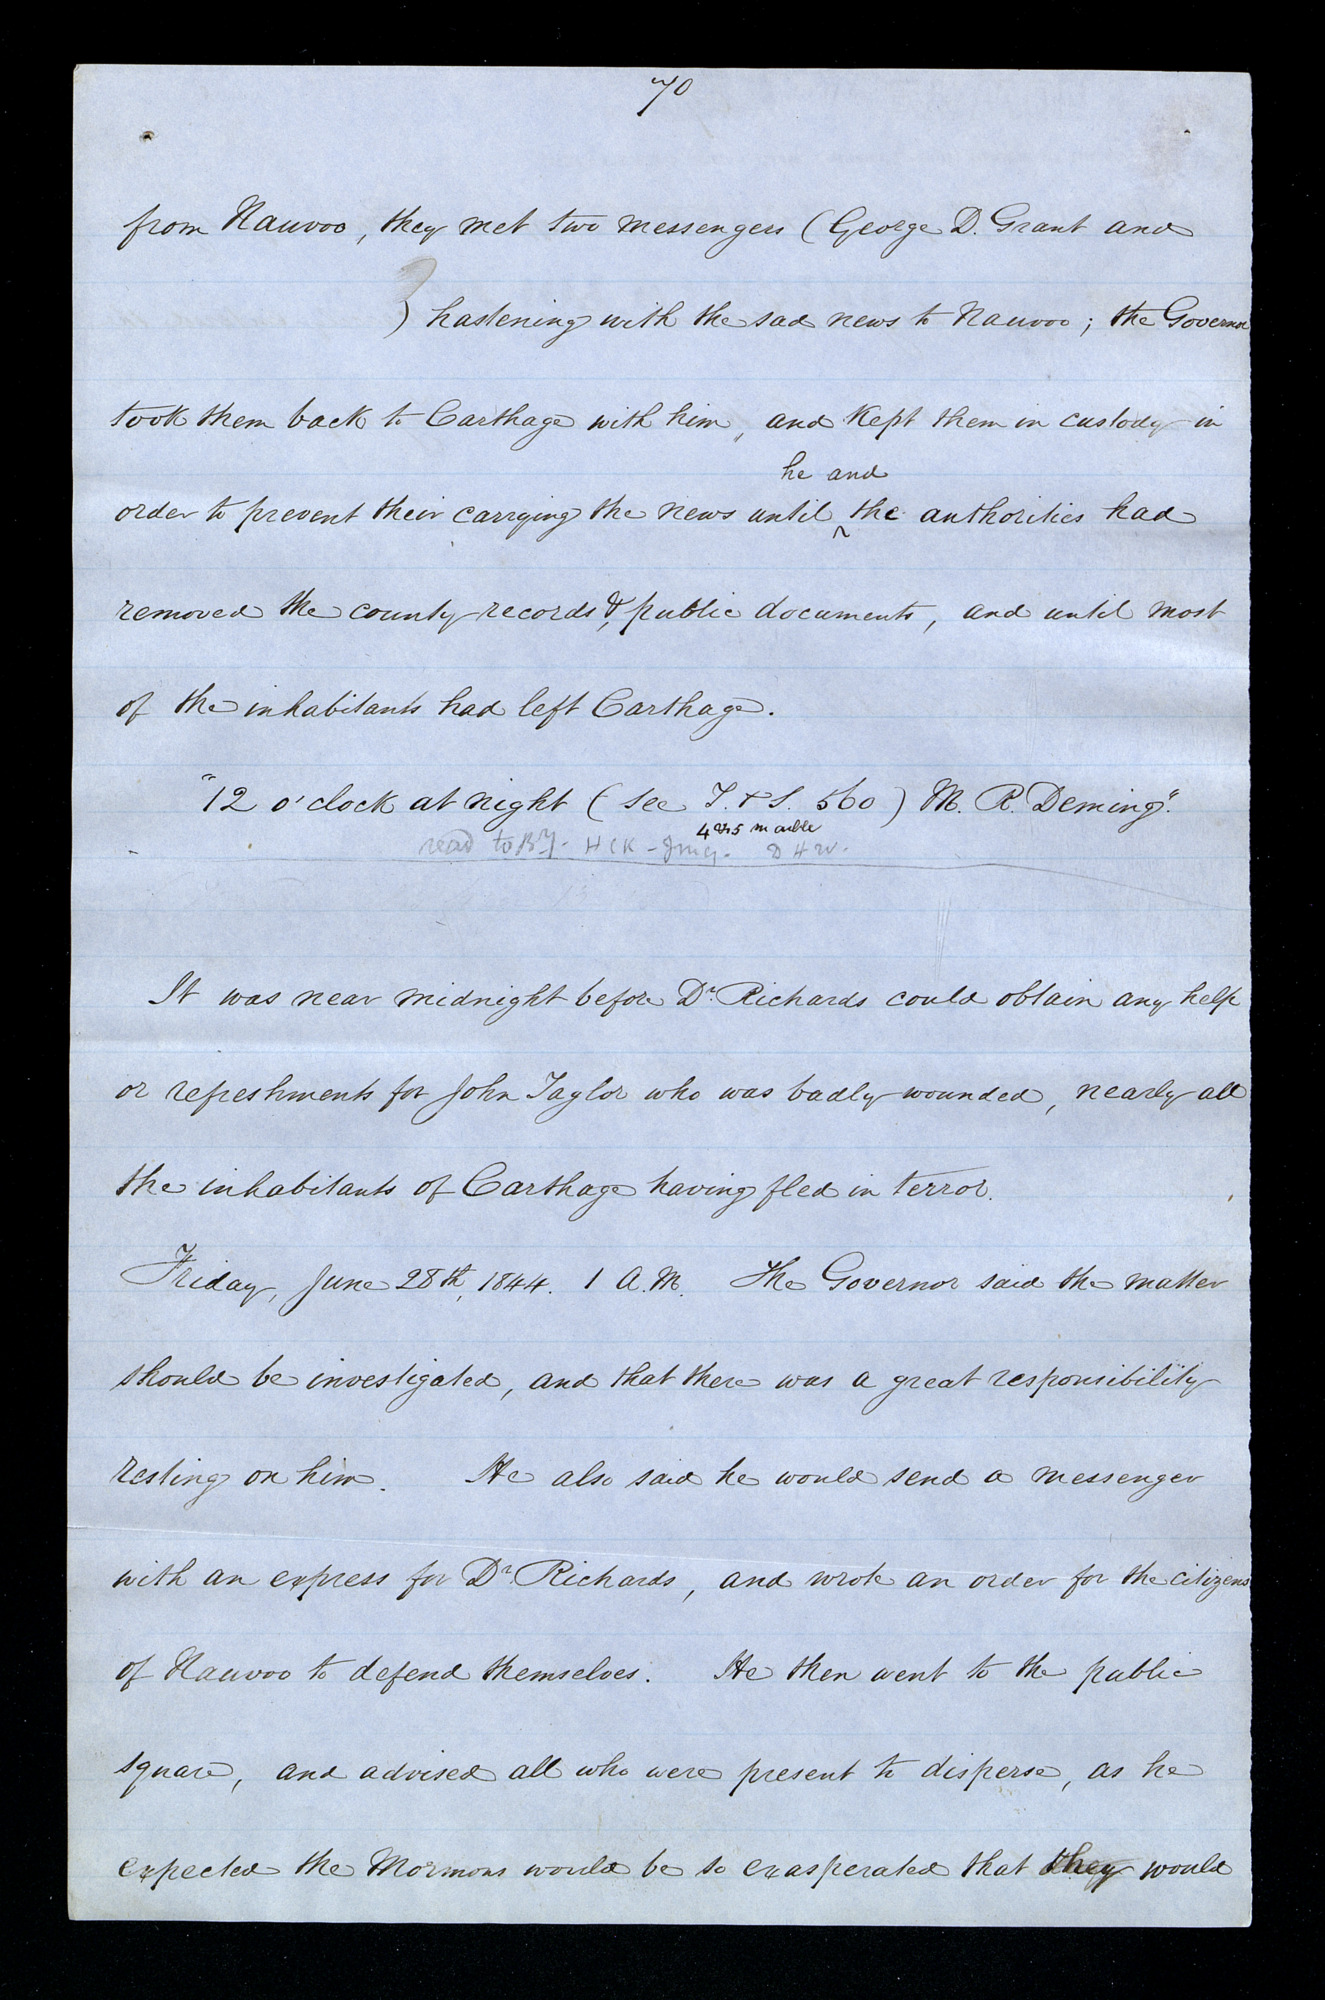 70
from Nauvoo, they met two messengers (George D. Grant and
) hastening with the sad news to Nauvoo; the Governor
took them back to Carthage with him, and kept them in custody in
he and
order to prevent their carrying the news until ^ the authorities had
removed the county records & public documents, and until most
of the inhabitants had left Carthage.
"12 o'clock at night (see T. & S. 560) M. R. Deming".
read to BY. HCK -
It was near midnight before Dr. Richards could obtain any help
or refreshments for John Taylor who was badly wounded, nearly all
the inhabitants of Carthage having fled in terror.
Friday, June 28th, 1844. 1 A.M. The Governor said the matter
should be investigated, and that there was a great responsibility
resting on him. He also said he would send a messenger
with an express for Dr. Richards, and wrote an order for the citizens
of Nauvoo to defend themselves. He then went to the public
square, and advised all who were present to disperse, as he
expected the Mormons would be so exasperated that they would